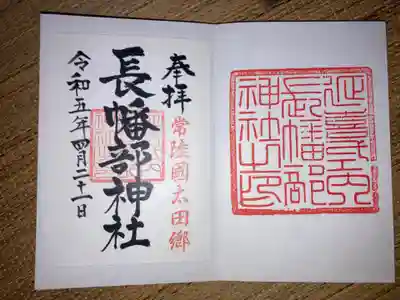 奉拝
常陸國太田郷
長幡部神社
令和五年四月二十一日
延喜式内
長幡部
神社之印